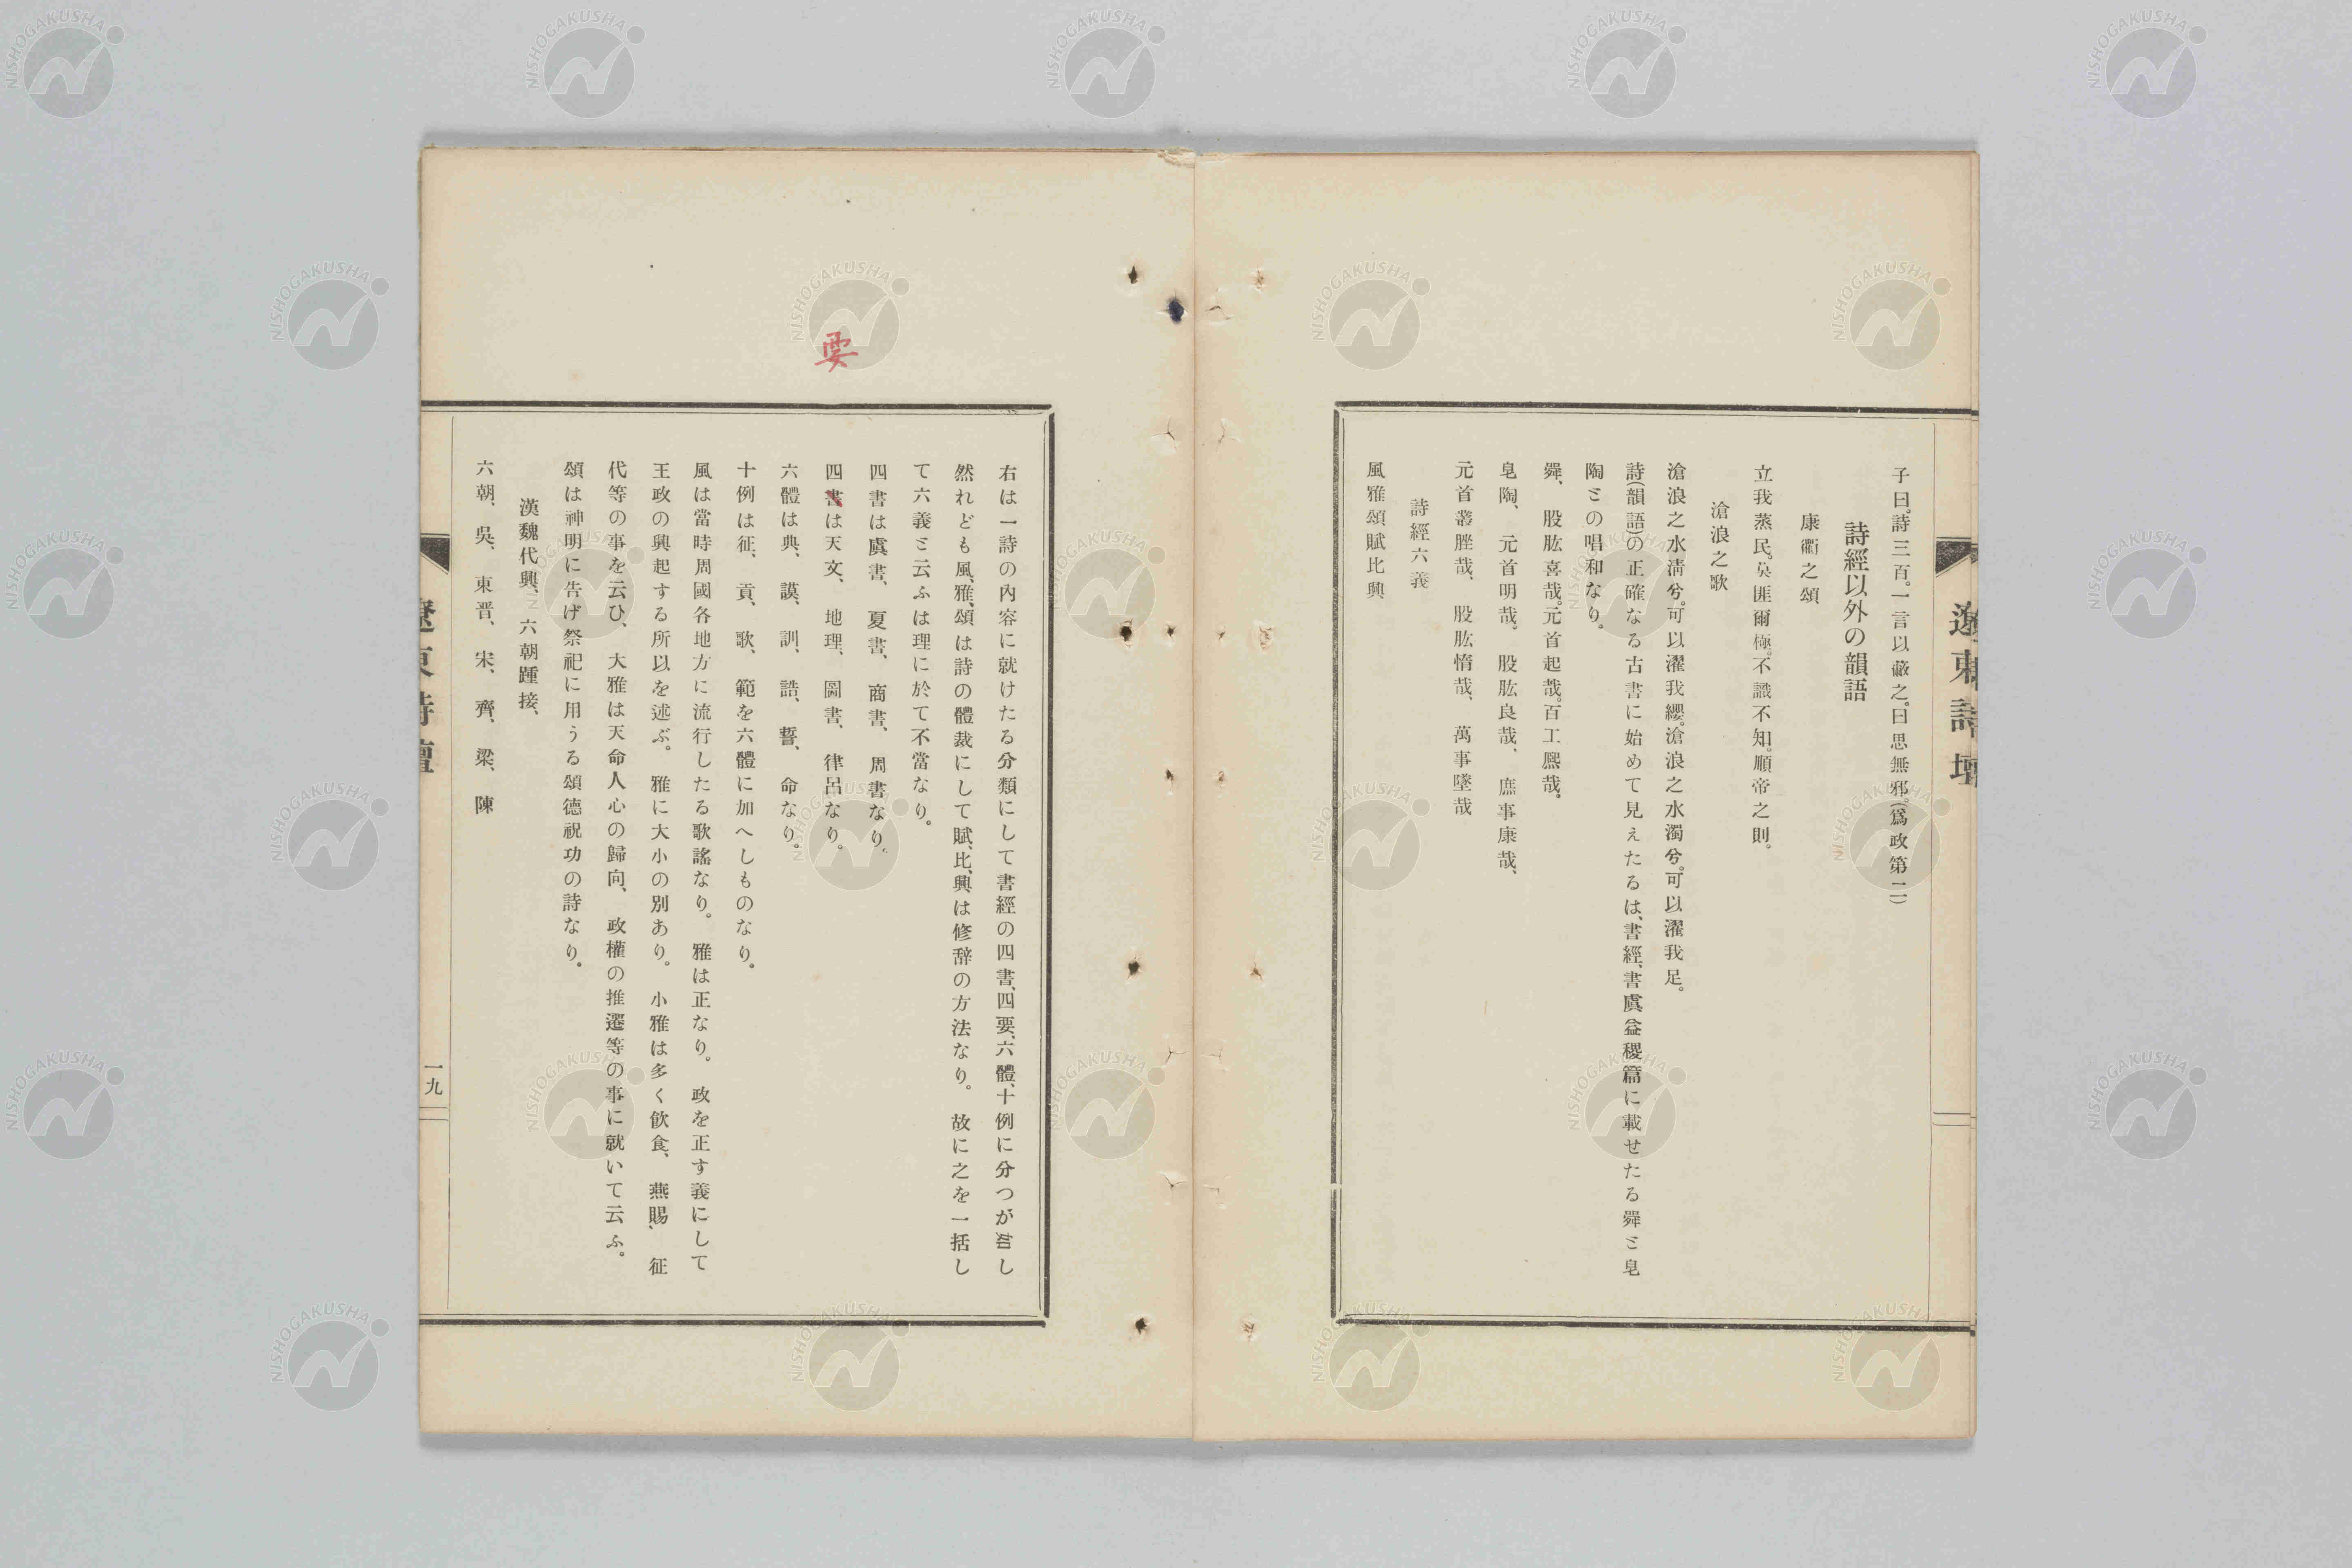 遼東詩壇
子曰。詩三百。一言以蔽之。曰思無邪。(爲政第二)
詩經以外の韻語
康衢之頌
立我蒸民。莫匪爾極。不識不知。順帝之則。
滄浪之歌
滄浪之水淸兮。可以濯我纓。滄浪之水濁兮。可以濯我足。
詩(韻語)の正確なる古書に始めて見えたるは、書經、書虞(益稷)篇に載せたる舜ミ皂
陶ミの唱和なり。
舜、股肱喜哉。元首起哉。百工凞哉。
皂陶、元首明哉。股肱良哉、庶事康哉、
元首叢脞哉、股肱惰哉、萬事墜哉
詩經六義
風雅頌賦比興
右は一詩の內容に就けたる分類にして書經の四書、四要、六體、十例に分つが如し
然れども風、雅、頌は詩の體裁にして賦、比、興は修辞の方法なり。故に之を一括し
て六義ミ云ふは理に於て不當なり。
四書は虞書、夏書、商書、周書なり、
要
四書は天文、地理、圖書、律呂なり。
六體は典、謨、訓、誥、誓、命なり。
十例は征、貢、歌、範を六體に加へしものなり。
風は當時周國各地方に流行したる歌謠なり。雅は正なり。政を正す義にして
王政の興起する所以を述ぶ。雅に大小の別あり。小雅は多く飮食、燕賜、征
代等の事を云ひ、大雅は天命人心の歸向、政權の推遷等の事に就いて云ふ。
頌は神明に告げ祭祀に用うる頌德祝功の詩なり。
漢魏代興、六朝踵接、
六朝、吳、東晋、宋、齊、梁、陳
遼東詩壇
一九
NISHOGAKUSHA